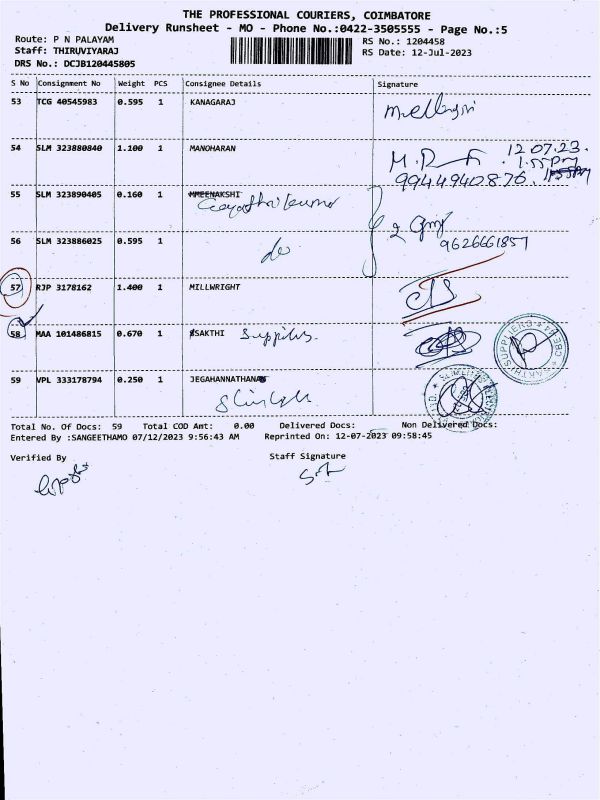 THE PROFESSIONAL COURIERS, COIMBATORE
Delivery Runsheet - MO - Phone No.:0422-3505555 - Page No.:5
Route: P N PALAYAM
RS No.: 1204458
Staff: THIRUVIYARAJ
RS Date: 12-Jul-2023
DRS No.: DCJB120445805
S No Consignment No Weight PCS Consignee Details Signature
53 TCG 40545983 0.595 1 KANAGARAJ
54 SLM 323880840 1.100 1 MANOHARAN
12.07.23.
1.55pm
9944940876.
55 SLM 323890405 0.160 1 MMEENAKSHI
56 SLM 323886025 0.595 1
do
9626661857
57 RJP 3178162 1.400 1 MILLWRIGHT
58 MAA 101486815 0.670 1 SAKTHI
59 VPL 333178794 0.250 1 JEGAHANNATHAN
Total No. Of Docs: 59 Total COD Amt: 0.00 Delivered Docs: Non Delivered Docs:
Entered By :SANGEETHAMO 07/12/2023 9:56:43 AM Reprinted On: 12-07-2023 09:58:45
Verified By Staff Signature